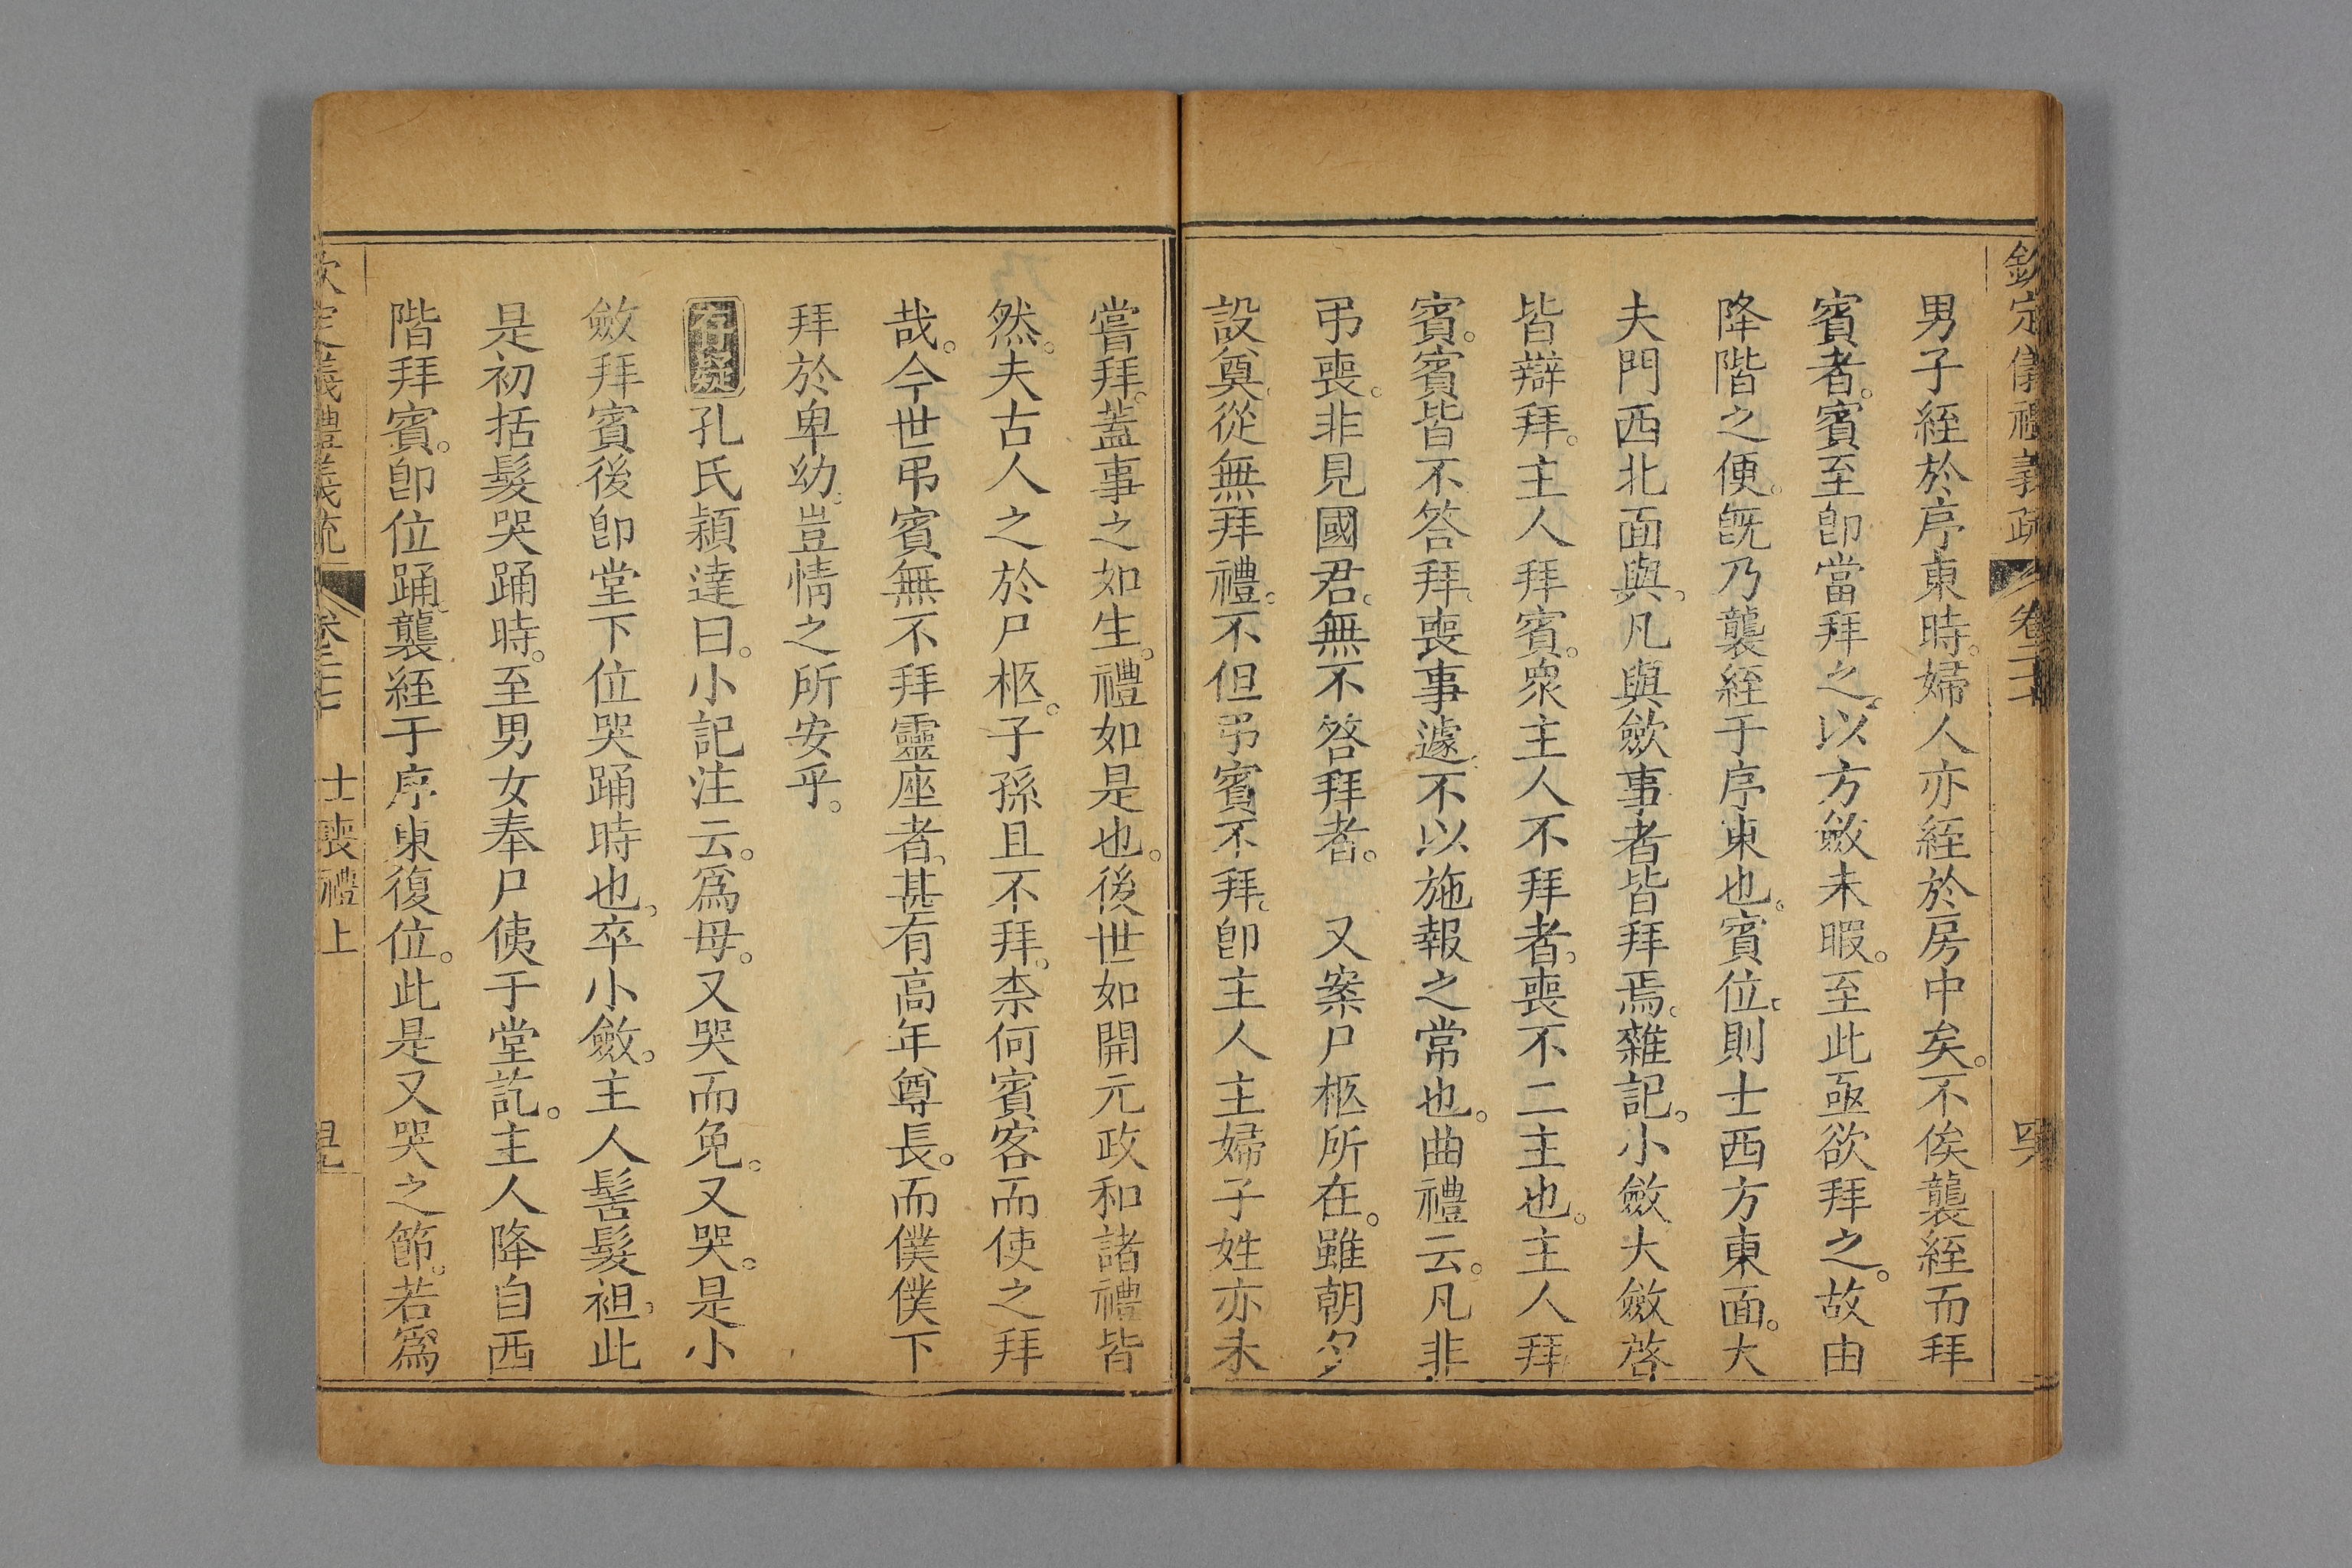 欽定儀禮義疏 卷二十七
男子絰於序東時。婦人亦絰於房中矣。不俟襲絰而拜
賓者。賓至卽當拜之。以方斂未暇。至此亟欲拜之。故由
降階之便。旣乃襲絰于序東也。賓位。則士西方東面。大
夫門西北面與。凡與斂事者皆拜焉。雜記。小斂大斂啓
皆辯拜。主人拜賓。衆主人不拜者。喪不二主也。主人拜
賓。賓皆不答拜。喪事遽。不以施報之常也。曲禮云。凡非
弔喪。非見國君。無不答拜者。 又案尸柩所在。雖朝夕
設奠。從無拜禮。不但弔賓不拜。卽主人主婦子姓亦未
嘗拜。蓋事之如生。禮如是也。後世如開元政和諸禮皆
然。夫古人之於尸柩。子孫且不拜。柰何賓客而使之拜
哉。今世弔賓無不拜靈座者。甚有高年尊長。而僕僕下
拜於卑幼。豈情之所安乎。
存疑 孔氏穎達曰。小記注云。爲母。又哭而免。又哭。是小
斂拜賓後卽堂下位哭踊時也。卒小斂。主人髺髮袒。此
是初括髮哭踊時。至男女奉尸侇于堂訖。主人降自西
階拜賓。卽位踊。襲絰于序東復位。此是又哭之節。若爲
欽定儀禮義疏 卷二十七 士喪禮上